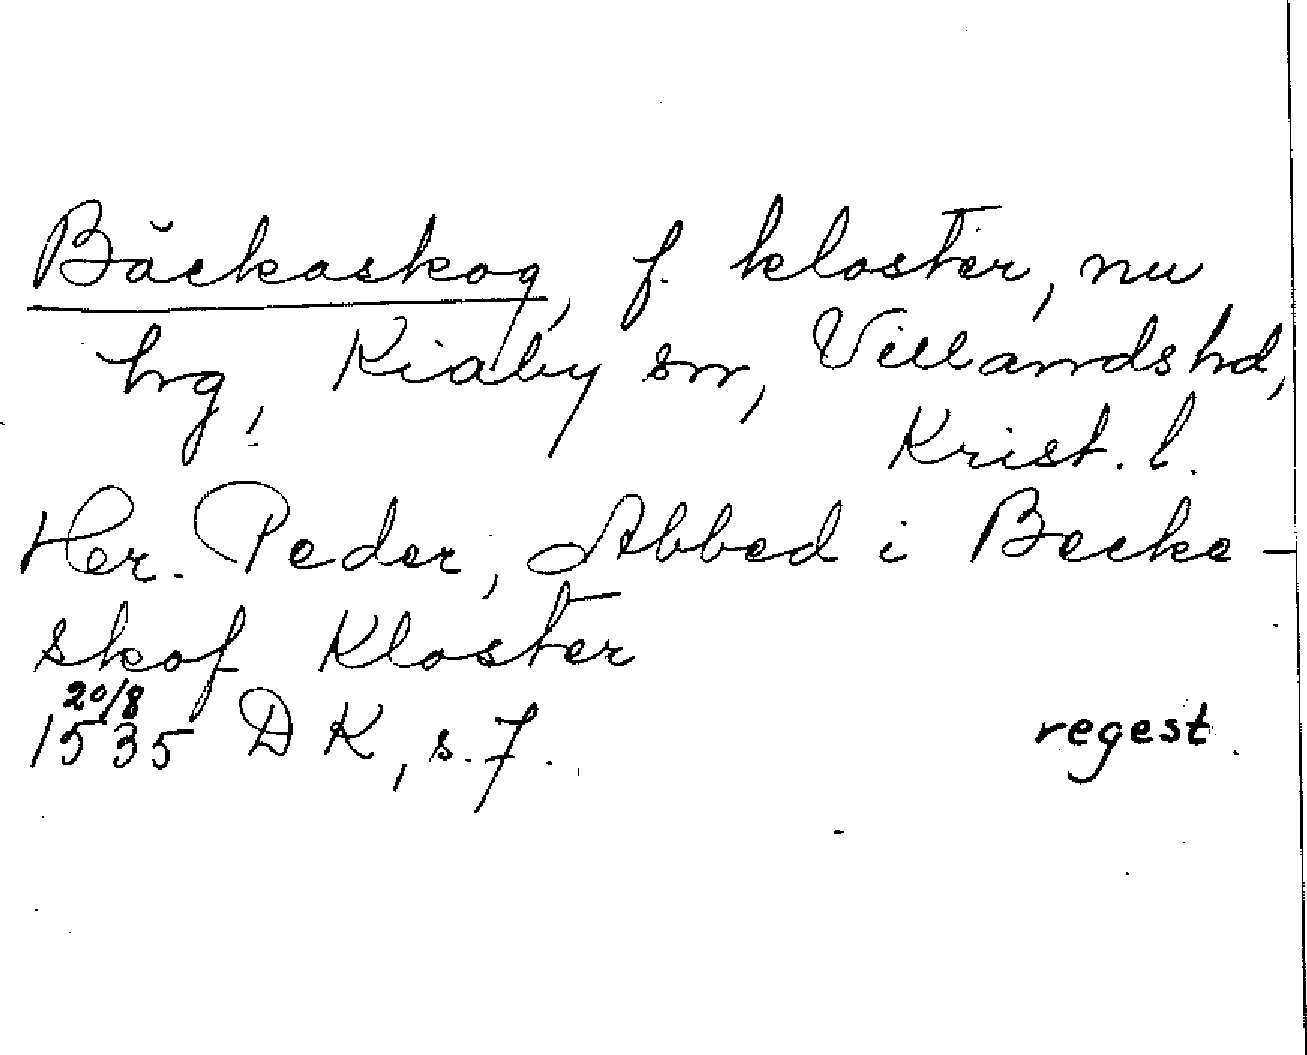 Bäckaskog, f. kloster, nu
hg, Kiaby sn, Villands hd,
Krist. l.
Her. Peder, Abbed i Becke-
skof Kloster
20/8
1535 DK, s. 7. regest.